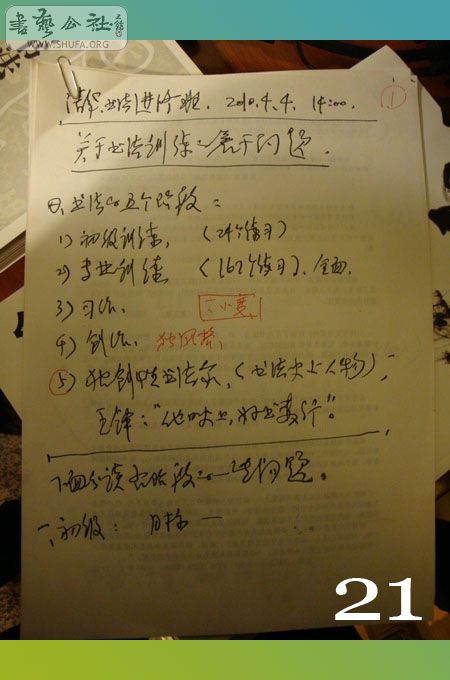 書藝公社
WWW.SHUFA.ORG
书法进修班. 2010.4.4. 14:00.
①
关于书法训练的若干问题.
书法的五个阶段:
1) 初级训练, (24个练习)
2) 专业训练 (162个练习). 全面.
3) 习作.
4) 创作. 独风格,
⑤ 独创性书法家, (书法史上人物),
下面分谈五阶段的一些问题。
一, 初级: 目标一
21